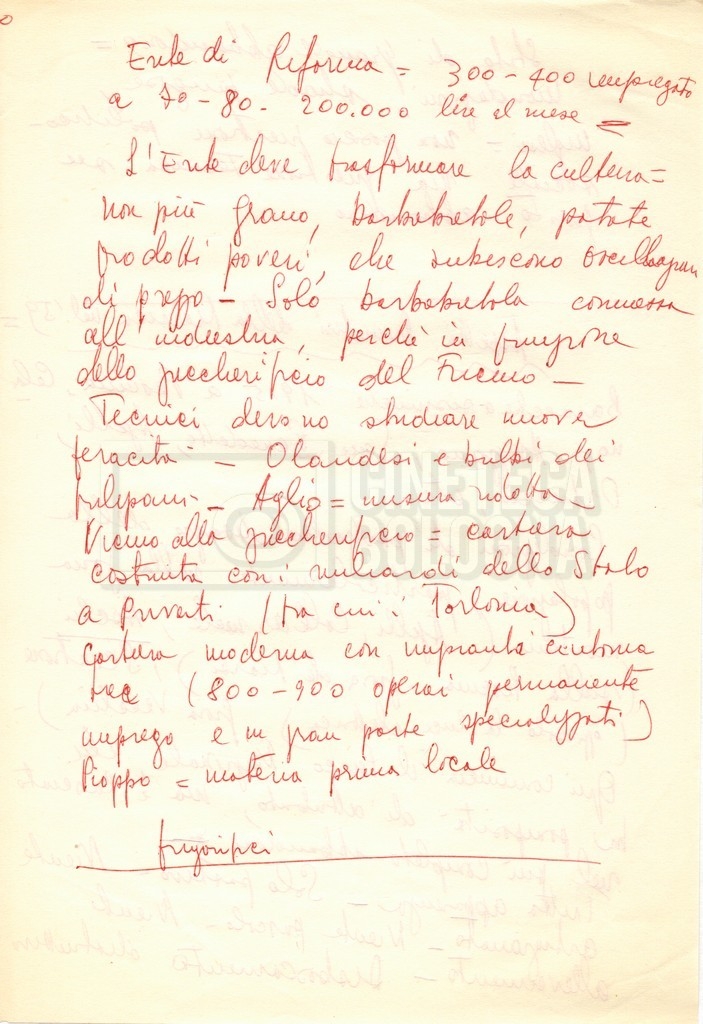 Ente di Riforma = 300-400 impiegato
a 70-80- 200.000 lire al mese =
L'Ente deve trasformare la cultura =
non più grano, barbabietole, patate
prodotti poveri, che subiscono oscillazioni
di prezzo - Solo barbabietola connessa
all'industria, perchè in funzione
dello zuccherificio del Fucino -
Tecnici devono studiare nuove
feracità - Olandesi e bulbi dei
tulipani - Aglio = misura ridotta -
Vicino allo zuccherificio = cartiera
costruita con i miliardi dello Stato
a Privati (tra cui i Torlonia)
Cartiera moderna con impianti
(800-900 operai permanente
impiego e in gran parte specializzati)
Pioppo = materia prima locale
frigoriferi
CINETECA
BOLOGNA